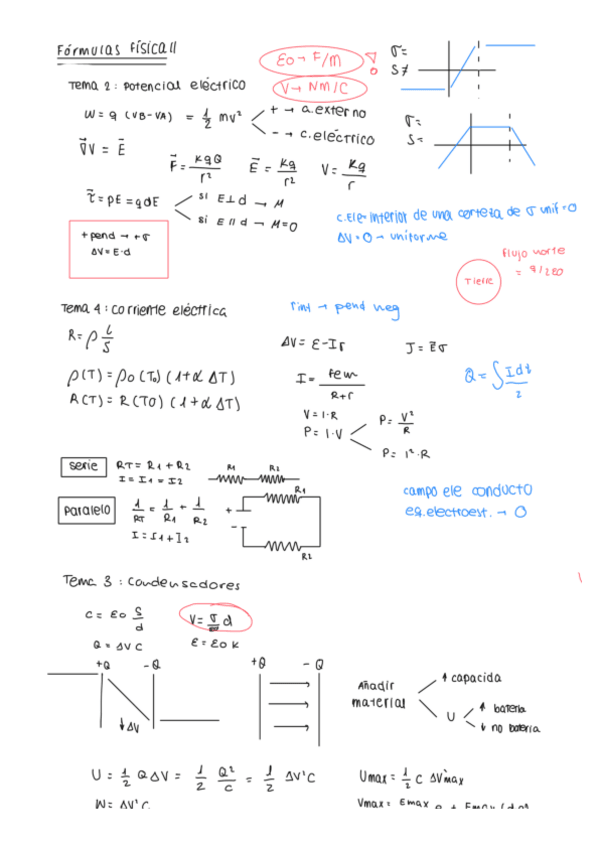 Fórmulas Física II
ε0 → F/M
V → NM/C
σ=
S≠
σ=
S=
Tema 2: Potencial eléctrico
W = q (VB-VA) = 1/2 mv²
+ → a.externo
- → c.eléctrico
∇V = E
F = kqQ/r²
E = kq/r²
V = kq/r
τ = pE = qdE
si E⊥d → M
si E∥d → M=0
+pend → +σ
ΔV = E·d
c.Ele interior de una corteza de σ unif=0
ΔV=0 → uniforme
flujo norte
= q/2ε0
Tierra
Tema 4: corriente eléctrica
rint → pend neg
R = ρ L/S
ΔV = ε-Ir
J = Eσ
ρ(T) = ρ0(T0)(1+αΔT)
R(T) = R(T0)(1+αΔT)
I = fem/R+r
Q = ∫ Idt/2
V = I·R
P = I·V
P = V²/R
P = I²·R
serie
RT = R1 + R2
I = I1 = I2
R1
R2
Paralelo
1/RT = 1/R1 + 1/R2
I = I1+I2
+
-
R1
R2
campo ele conducto
eq.electroest. → 0
Tema 3: Condensadores
C = ε0 S/d
V = σ/ε d
Q = ΔV C
ε = ε0 K
+Q -Q
↓ΔV
+Q - Q
Añadir material
↑ capacida
U
↑ bateria
↓ no bateria
U = 1/2 QΔV = 1/2 Q²/C = 1/2 ΔV²C
Umax = 1/2 C ΔV²max
W = ΔV²C
Vmax = Emax